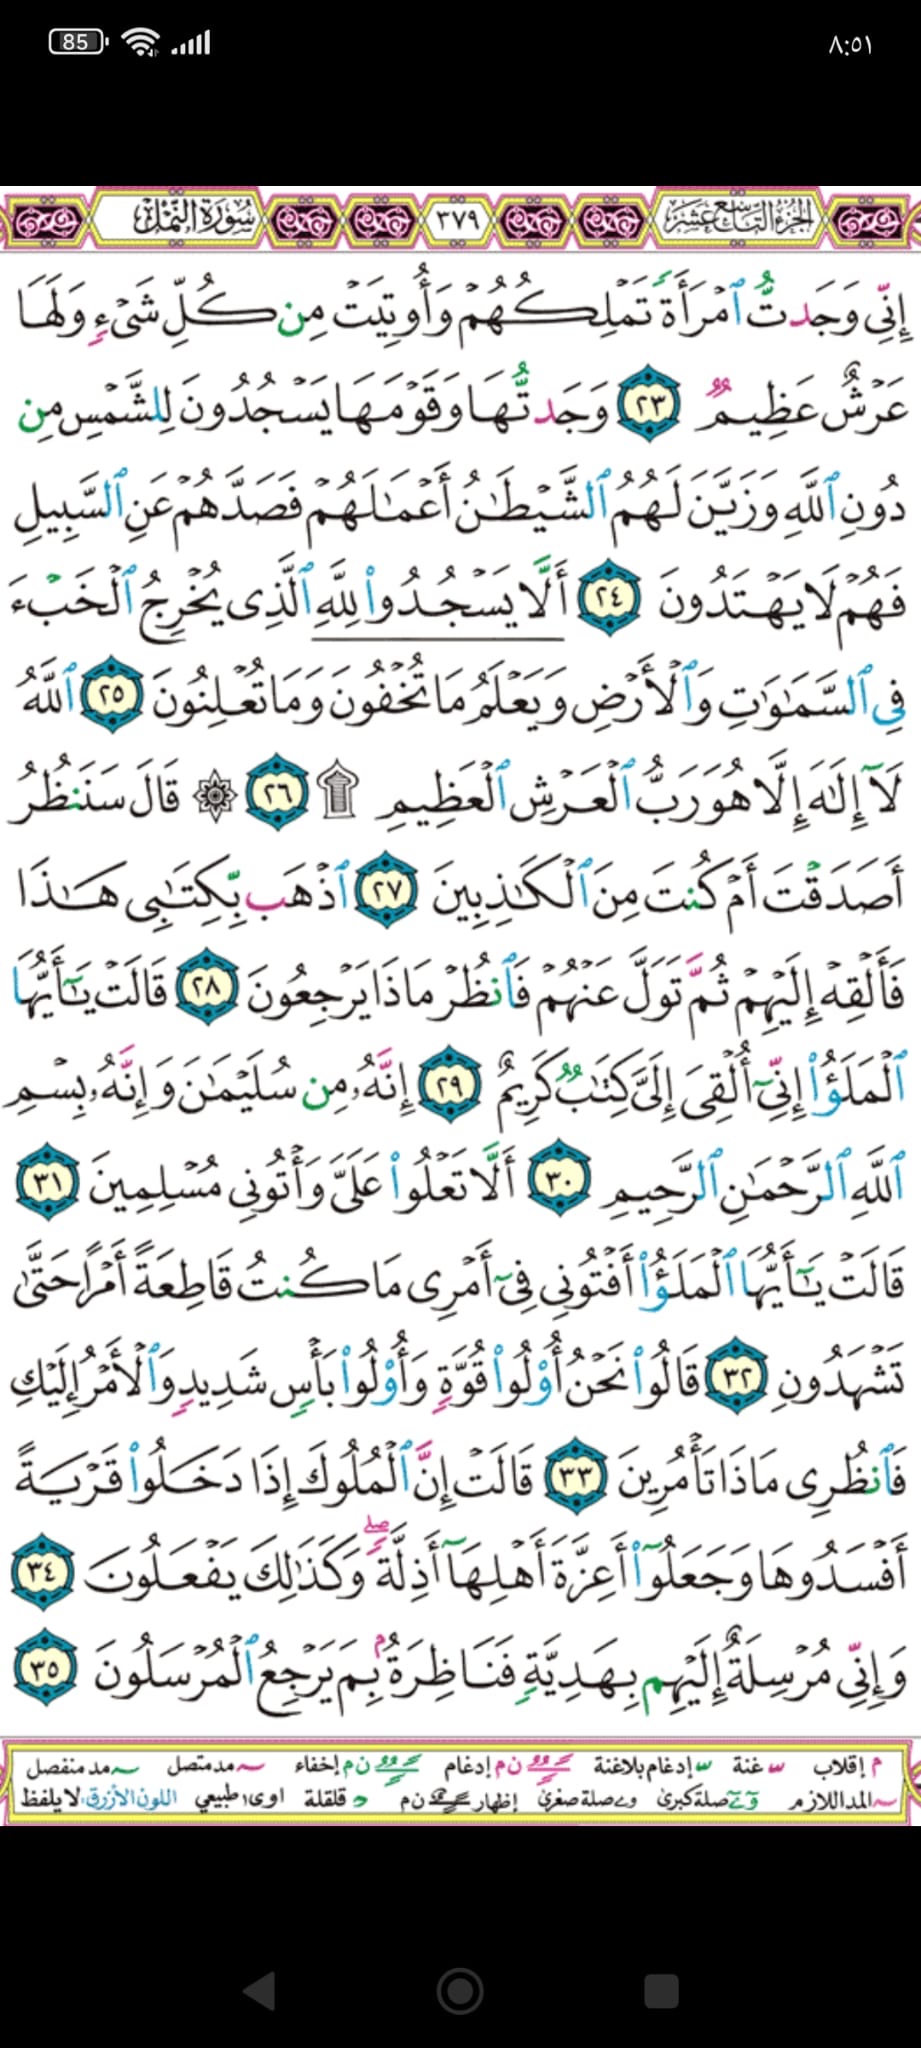 85
٨:٥١
الجزء التاسع عشر
٣٧٩
سورة النمل
إِنِّي وَجَدتُّ ٱمۡرَأَةٗ تَمۡلِكُهُمۡ وَأُوتِيَتۡ مِن كُلِّ شَيۡءٖ وَلَهَا
عَرۡشٌ عَظِيمٞ ٢٣ وَجَدتُّهَا وَقَوۡمَهَا يَسۡجُدُونَ لِلشَّمۡسِ مِن
دُونِ ٱللَّهِ وَزَيَّنَ لَهُمُ ٱلشَّيۡطَٰنُ أَعۡمَٰلَهُمۡ فَصَدَّهُمۡ عَنِ ٱلسَّبِيلِ
فَهُمۡ لَا يَهۡتَدُونَ ٢٤ أَلَّاۤ يَسۡجُدُواْۤ لِلَّهِۤ ٱلَّذِي يُخۡرِجُ ٱلۡخَبۡءَ
فِي ٱلسَّمَٰوَٰتِ وَٱلۡأَرۡضِ وَيَعۡلَمُ مَا تُخۡفُونَ وَمَا تُعۡلِنُونَ ٢٥ ٱللَّهُ
لَآ إِلَٰهَ إِلَّا هُوَ رَبُّ ٱلۡعَرۡشِ ٱلۡعَظِيمِ ۩ ٢٦ ۞ قَالَ سَنَنظُرُ
أَصَدَقۡتَ أَمۡ كُنتَ مِنَ ٱلۡكَٰذِبِينَ ٢٧ ٱذۡهَب بِّكِتَٰبِي هَٰذَا
فَأَلۡقِهۡ إِلَيۡهِمۡ ثُمَّ تَوَلَّ عَنۡهُمۡ فَٱنظُرۡ مَاذَا يَرۡجِعُونَ ٢٨ قَالَتۡ يَٰٓأَيُّهَا
ٱلۡمَلَؤُاْ إِنِّيٓ أُلۡقِيَ إِلَيَّ كِتَٰبٞ كَرِيمٌ ٢٩ إِنَّهُۥ مِن سُلَيۡمَٰنَ وَإِنَّهُۥ بِسۡمِ
ٱللَّهِ ٱلرَّحۡمَٰنِ ٱلرَّحِيمِ ٣٠ أَلَّا تَعۡلُواْ عَلَيَّ وَأۡتُونِي مُسۡلِمِينَ ٣١
قَالَتۡ يَٰٓأَيُّهَا ٱلۡمَلَؤُاْ أَفۡتُونِي فِيٓ أَمۡرِي مَا كُنتُ قَاطِعَةً أَمۡرًا حَتَّىٰ
تَشۡهَدُونِ ٣٢ قَالُواْ نَحۡنُ أُوْلُواْ قُوَّةٖ وَأُوْلُواْ بَأۡسٖ شَدِيدٖ وَٱلۡأَمۡرُ إِلَيۡكِ
فَٱنظُرِي مَاذَا تَأۡمُرِينَ ٣٣ قَالَتۡ إِنَّ ٱلۡمُلُوكَ إِذَا دَخَلُواْ قَرۡيَةً
أَفۡسَدُوهَا وَجَعَلُوٓاْ أَعِزَّةَ أَهۡلِهَآ أَذِلَّةٗۖ وَكَذَٰلِكَ يَفۡعَلُونَ ٣٤
وَإِنِّي مُرۡسِلَةٌ إِلَيۡهِم بِهَدِيَّةٖ فَنَاظِرَةُۢ بِمَ يَرۡجِعُ ٱلۡمُرۡسَلُونَ ٣٥
م إقلاب غنة إدغام بلاغنة ن م إدغام ن م إخفاء مد متصل مد منفصل
المد اللازم صلة كبرى صلة صغرى إظهار ن م قلقلة اوي طبيعي اللون الأزرق لا يلفظ